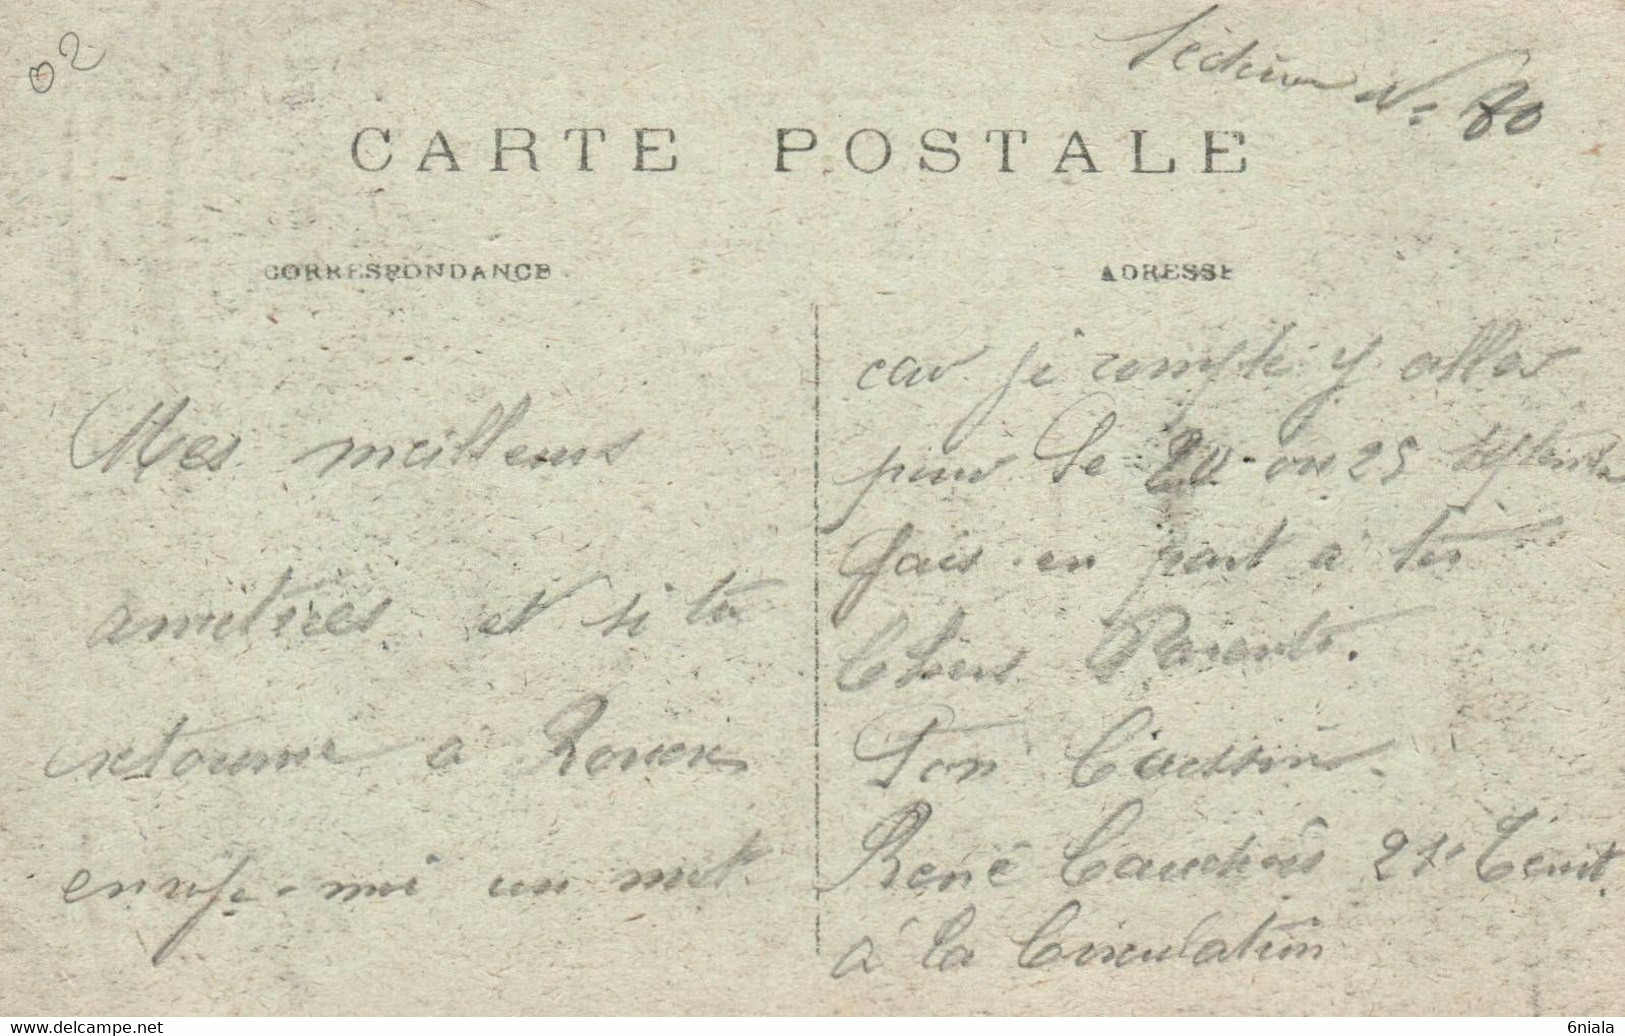 02
Section No 80
CARTE POSTALE
CORRESPONDANCE
ADRESSE
Mes meilleurs
amitiées et si tu
retourne a Rouen
envoye-moi un mot
car je compte y aller
pour le 20 ou 25 septembre
fais-en part a tes
Chers Parents.
Ton Cousin.
René 27e
à la Circulation
www.delcampe.net
6niala